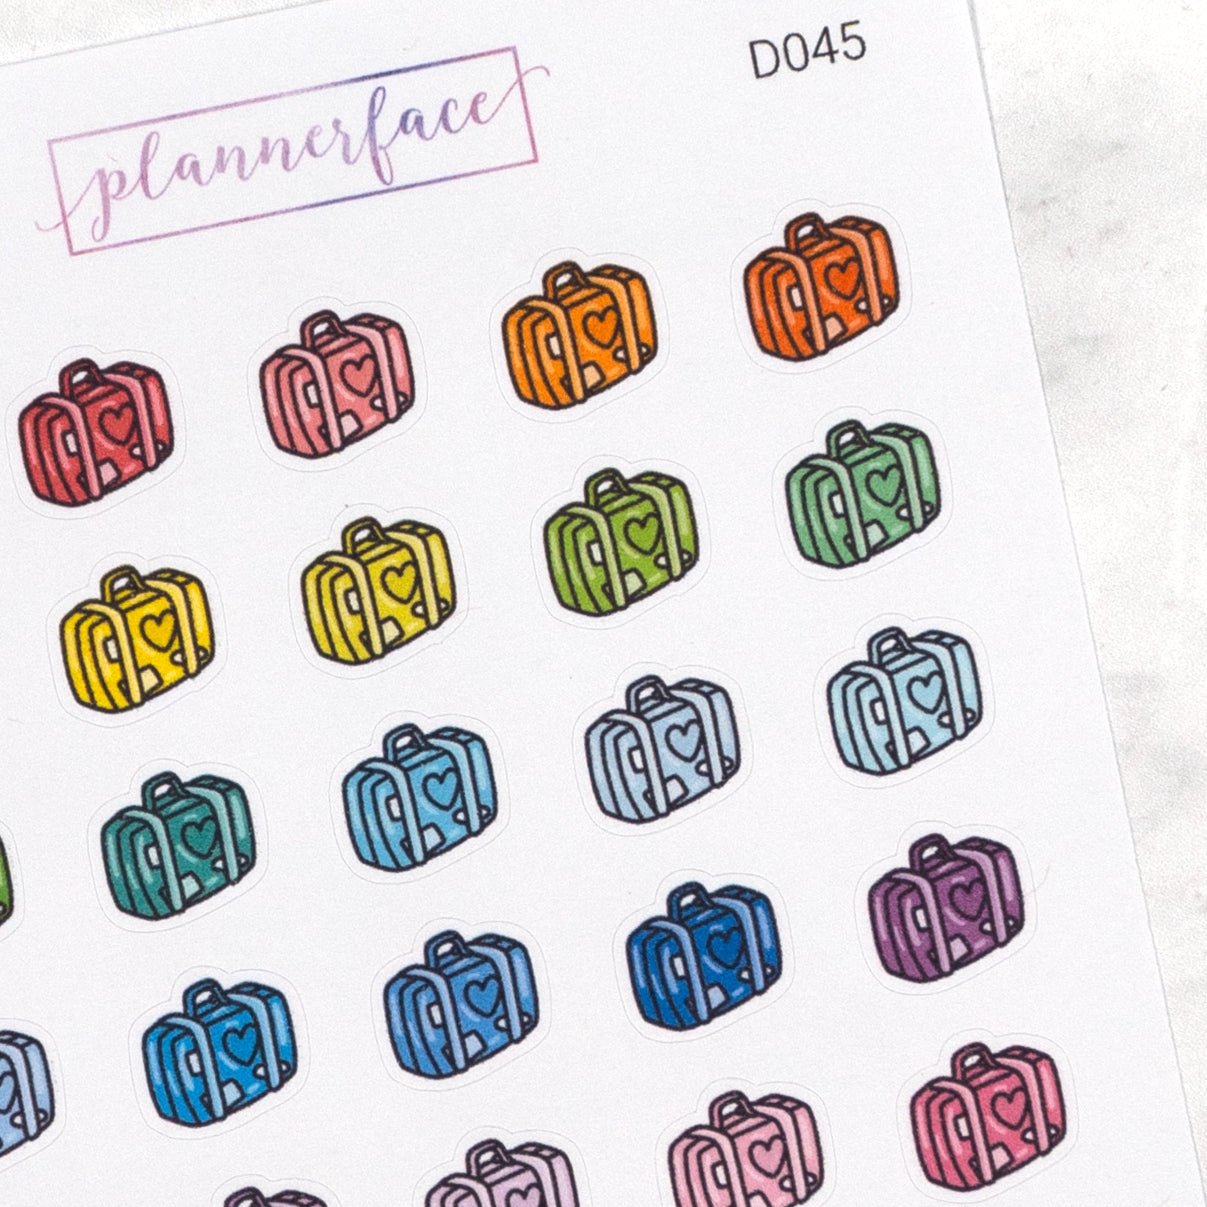 plannerface
D045